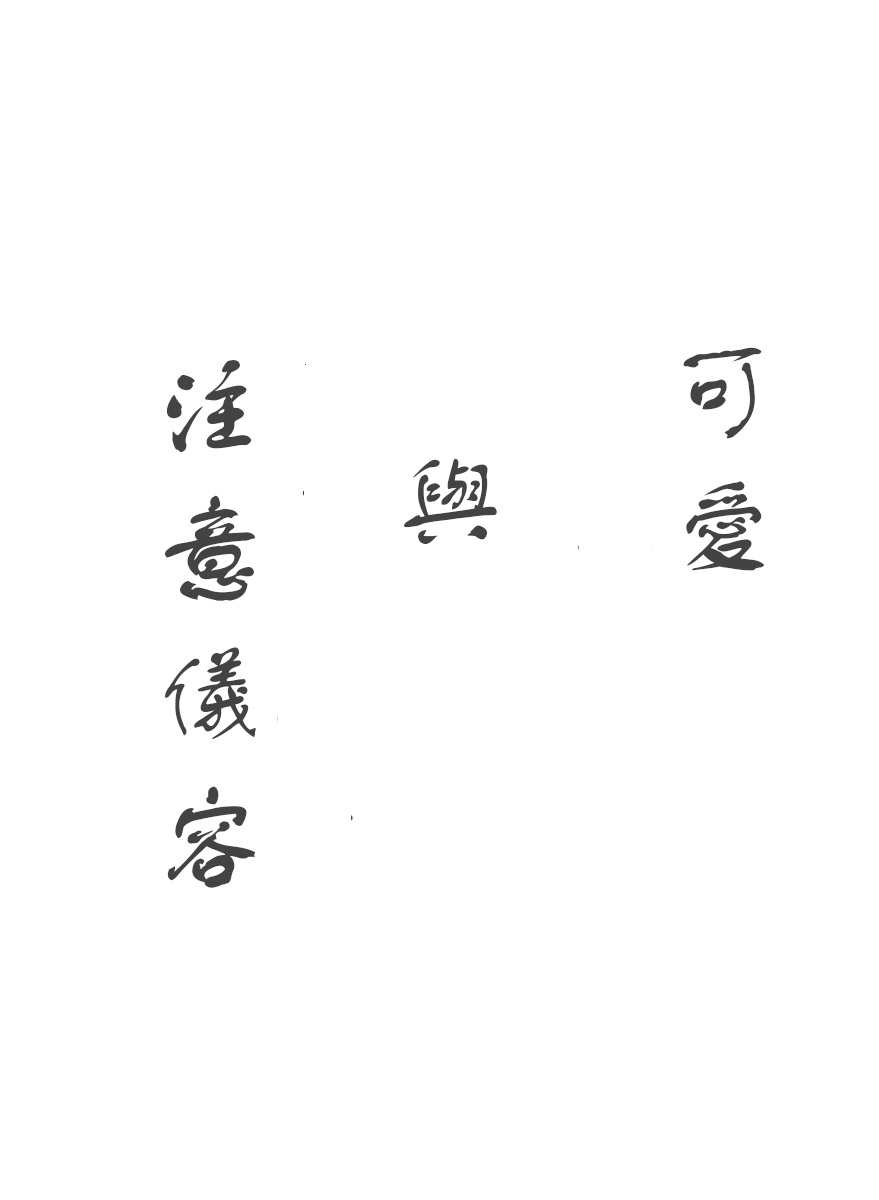 可愛
與
注意儀容